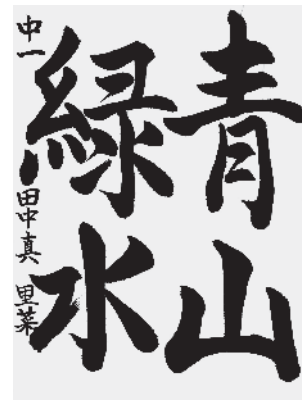 青山
緑水
中一 田中真里菜